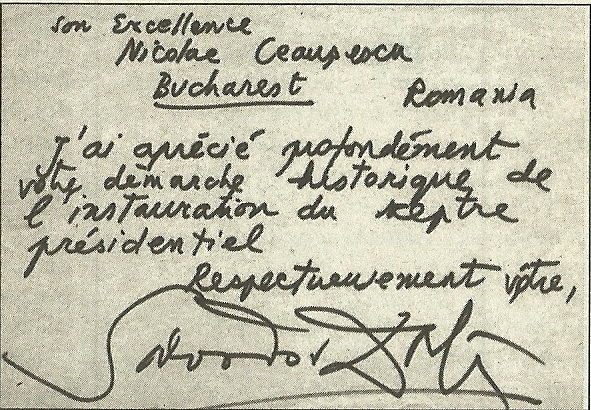 son Excellence
Nicolae Ceaușescu
Bucharest Romania
J'ai aprécié profondément
votre démarche historique de
l'instauration du sceptre
présidentiel
Respectueusement vôtre,
Salvador Dalí